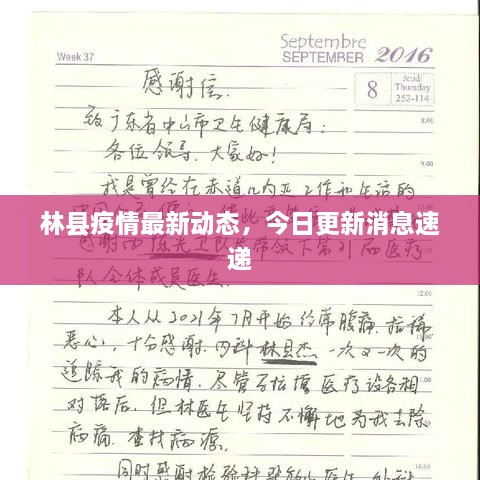 Septembre
SEPTEMBER 2016
Week 37
8 Jeudi Thursday 252-114
感谢信.
8.00
致广东省中山市卫生健康局:
各位领导、大家好!
我是曾经在赤道几内亚工作和生活的
林县疫情最新动态，今日更新消息速
递
队全体成员医生.
本人从2021年7月开始经常腹痛
恶心, 十分感谢内科林县杰一次又一次的
追踪我的病情. 尽管 医疗设备相
对落后, 但林医生坚持不懈地为我去除
病痛、查找病源.
同时感谢检验科